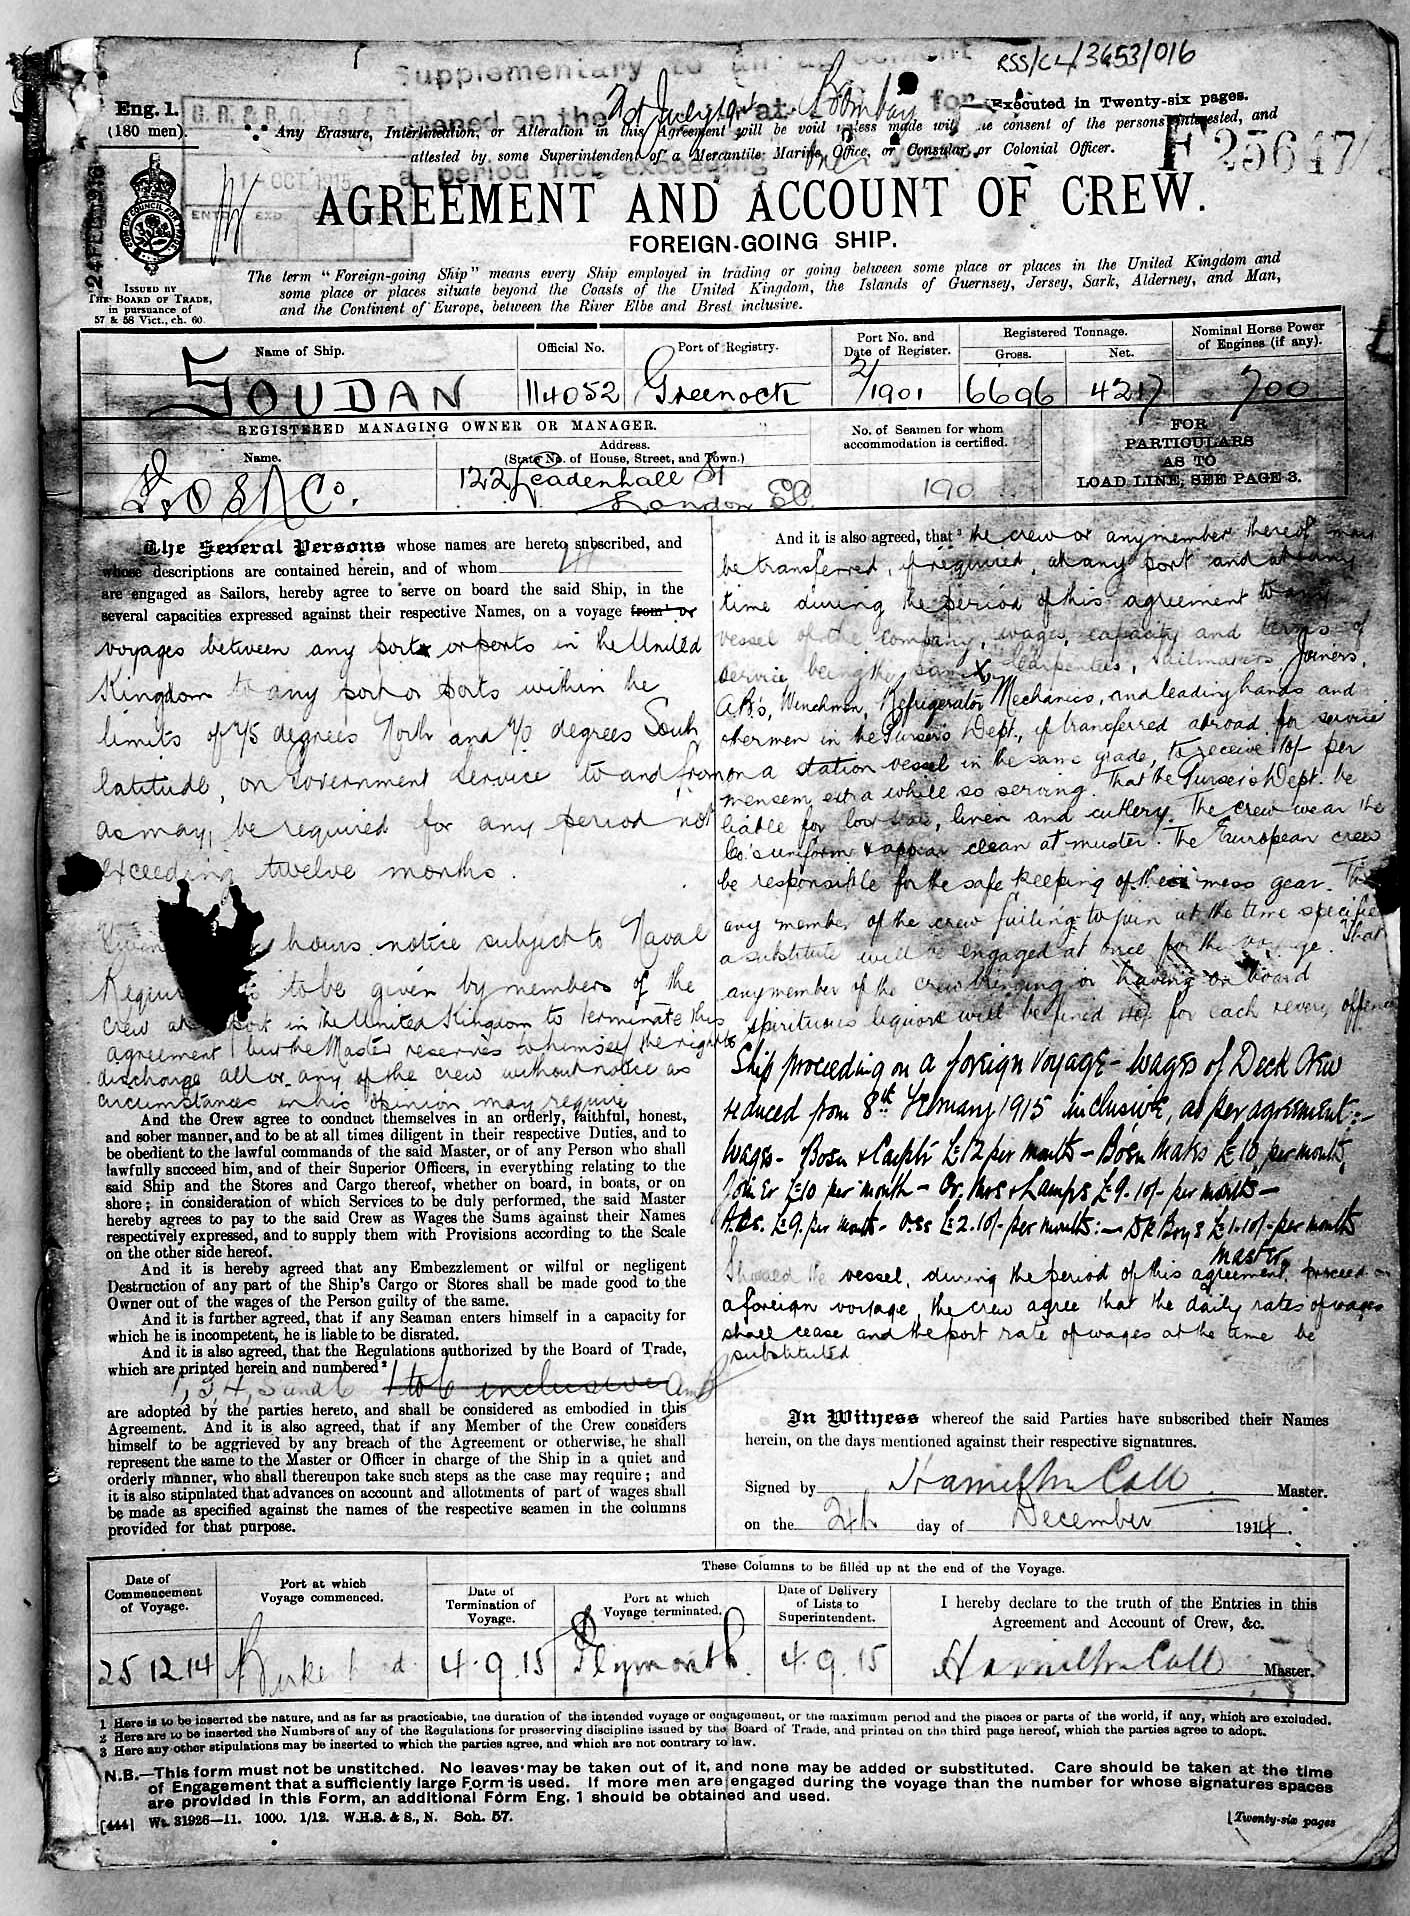 RSS/CL/3653/016
Supplementary to an agreement
Eng. 1.
(180 men).
opened on the 2nd July 1914 at Bombay for
Executed in Twenty-six pages.
Any Erasure, Interlineation, or Alteration in this Agreement will be void unless made with the consent of the persons interested, and
attested by some Superintendent of a Mercantile Marine Office, or Consular or Colonial Officer.
a period not exceeding one year.
F 25647
OCT 1915
24 FEB 1916
AGREEMENT AND ACCOUNT OF CREW.
FOREIGN-GOING SHIP.
ISSUED BY
THE BOARD OF TRADE,
in pursuance of
57 & 58 Vict., ch. 60.
The term "Foreign-going Ship" means every Ship employed in trading or going between some place or places in the United Kingdom and
some place or places situate beyond the Coasts of the United Kingdom, the Islands of Guernsey, Jersey, Sark, Alderney, and Man,
and the Continent of Europe, between the River Elbe and Brest inclusive.
Name of Ship. Official No. Port of Registry. Port No. and Date of Register. Registered Tonnage. Gross. Net. Nominal Horse Power of Engines (if any).
SOUDAN 114052 Greenock 2/1901 6696 4217 700
REGISTERED MANAGING OWNER OR MANAGER.
Name. Address. (State No. of House, Street, and Town.)
No. of Seamen for whom accommodation is certified.
FOR PARTICULARS AS TO LOAD LINE, SEE PAGE 3.
P & O S N Co. 122 Leadenhall St
London EC 190
The Several Persons whose names are hereto subscribed, and
whose descriptions are contained herein, and of whom
are engaged as Sailors, hereby agree to serve on board the said Ship, in the
several capacities expressed against their respective Names, on a voyage from or
voyages between any port or ports in the United
Kingdom to any port or ports within the
limits of 75 degrees North and 70 degrees South
latitude, on Government service to and from
as may be required for any period not
exceeding twelve months.
hours notice subject to Naval
to be given by members of the
crew at port in the United Kingdom to terminate this
agreement but the Master reserves to himself the right to
discharge all or any of the crew without notice as
circumstances in his opinion may require
And the Crew agree to conduct themselves in an orderly, faithful, honest,
and sober manner, and to be at all times diligent in their respective Duties, and to
be obedient to the lawful commands of the said Master, or of any Person who shall
lawfully succeed him, and of their Superior Officers, in everything relating to the
said Ship and the Stores and Cargo thereof, whether on board, in boats, or on
shore; in consideration of which Services to be duly performed, the said Master
hereby agrees to pay to the said Crew as Wages the Sums against their Names
respectively expressed, and to supply them with Provisions according to the Scale
on the other side hereof.
And it is hereby agreed that any Embezzlement or wilful or negligent
Destruction of any part of the Ship's Cargo or Stores shall be made good to the
Owner out of the wages of the Person guilty of the same.
And it is further agreed, that if any Seaman enters himself in a capacity for
which he is incompetent, he is liable to be disrated.
And it is also agreed, that the Regulations authorized by the Board of Trade,
which are printed herein and numbered²
1, 3, 4, 5 and 6 1 to 6 inclusive
are adopted by the parties hereto, and shall be considered as embodied in this
Agreement. And it is also agreed, that if any Member of the Crew considers
himself to be aggrieved by any breach of the Agreement or otherwise, he shall
represent the same to the Master or Officer in charge of the Ship in a quiet and
orderly manner, who shall thereupon take such steps as the case may require; and
it is also stipulated that advances on account and allotments of part of wages shall
be made as specified against the names of the respective seamen in the columns
provided for that purpose.
And it is also agreed, that³ the crew or any member thereof may
be transferred, if required, at any port and at any
time during the period of this agreement to any
vessel of the company, wages, capacity and terms of
service being the same. Carpenters, Sailmakers, Joiners,
A.B's, Winchmen, Refrigerator Mechanics, and leading hands and
in the Purser's Dept, if transferred abroad for service
on a station vessel in the same grade, to receive 10/- per
mensem extra while so serving. That the Purser's Dept. be
liable for lost linen and cutlery. The crew wear the
Co.'s uniform & appear clean at muster. The European crew
be responsible for the safe keeping of their mess gear. That
any member of the crew failing to join at the time specified
a substitute will be engaged at once for the voyage. That
any member of the crew bringing or having on board
spirituous liquors will be fined 10/- for each & every offence
Ship proceeding on a foreign voyage - wages of Deck Crew
reduced from 8th February 1915 inclusive, as per agreement:-
Wages - Bosn & Carptr £12 per month - Bosn Mates £10 per month,
Joiner £10 per month - Qr. Mrs & Lamps £9.10/- per month -
A.Bs. £9. per month - O.Ss £2.10/- per month:- Dk Boys £1.10/- per month
Master
Should the vessel, during the period of this agreement, proceed on
a foreign voyage the crew agree that the daily rates of wages
shall cease and the port rate of wages at the time be
substituted
In Witness whereof the said Parties have subscribed their Names
herein, on the days mentioned against their respective signatures.
Signed by Hamilton Call Master.
on the 24th day of December 1914.
These Columns to be filled up at the end of the Voyage.
Date of Commencement of Voyage. Port at which Voyage commenced. Date of Termination of Voyage. Port at which Voyage terminated. Date of Delivery of Lists to Superintendent. I hereby declare to the truth of the Entries in this Agreement and Account of Crew, &c.
25 12 14 Birkenhead 4.9.15 Plymouth 4.9.15 Hamilton Call Master.
1 Here is to be inserted the nature, and as far as practicable, the duration of the intended voyage or engagement, or the maximum period and the places or parts of the world, if any, which are excluded.
2 Here are to be inserted the Numbers of any of the Regulations for preserving discipline issued by the Board of Trade, and printed on the third page hereof, which the parties agree to adopt.
3 Here any other stipulations may be inserted to which the parties agree, and which are not contrary to law.
N.B.—This form must not be unstitched. No leaves may be taken out of it, and none may be added or substituted. Care should be taken at the time
of Engagement that a sufficiently large Form is used. If more men are engaged during the voyage than the number for whose signatures spaces
are provided in this Form, an additional Form Eng. 1 should be obtained and used.
[444] Wt. 31926—11. 1000. 1/12. W.H.S. & S., N. Sch. 57.
[Twenty-six pages